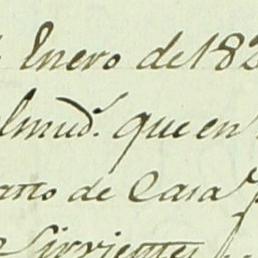 Enero de 182
lmud. que en
atto de Casa
Sirvientes